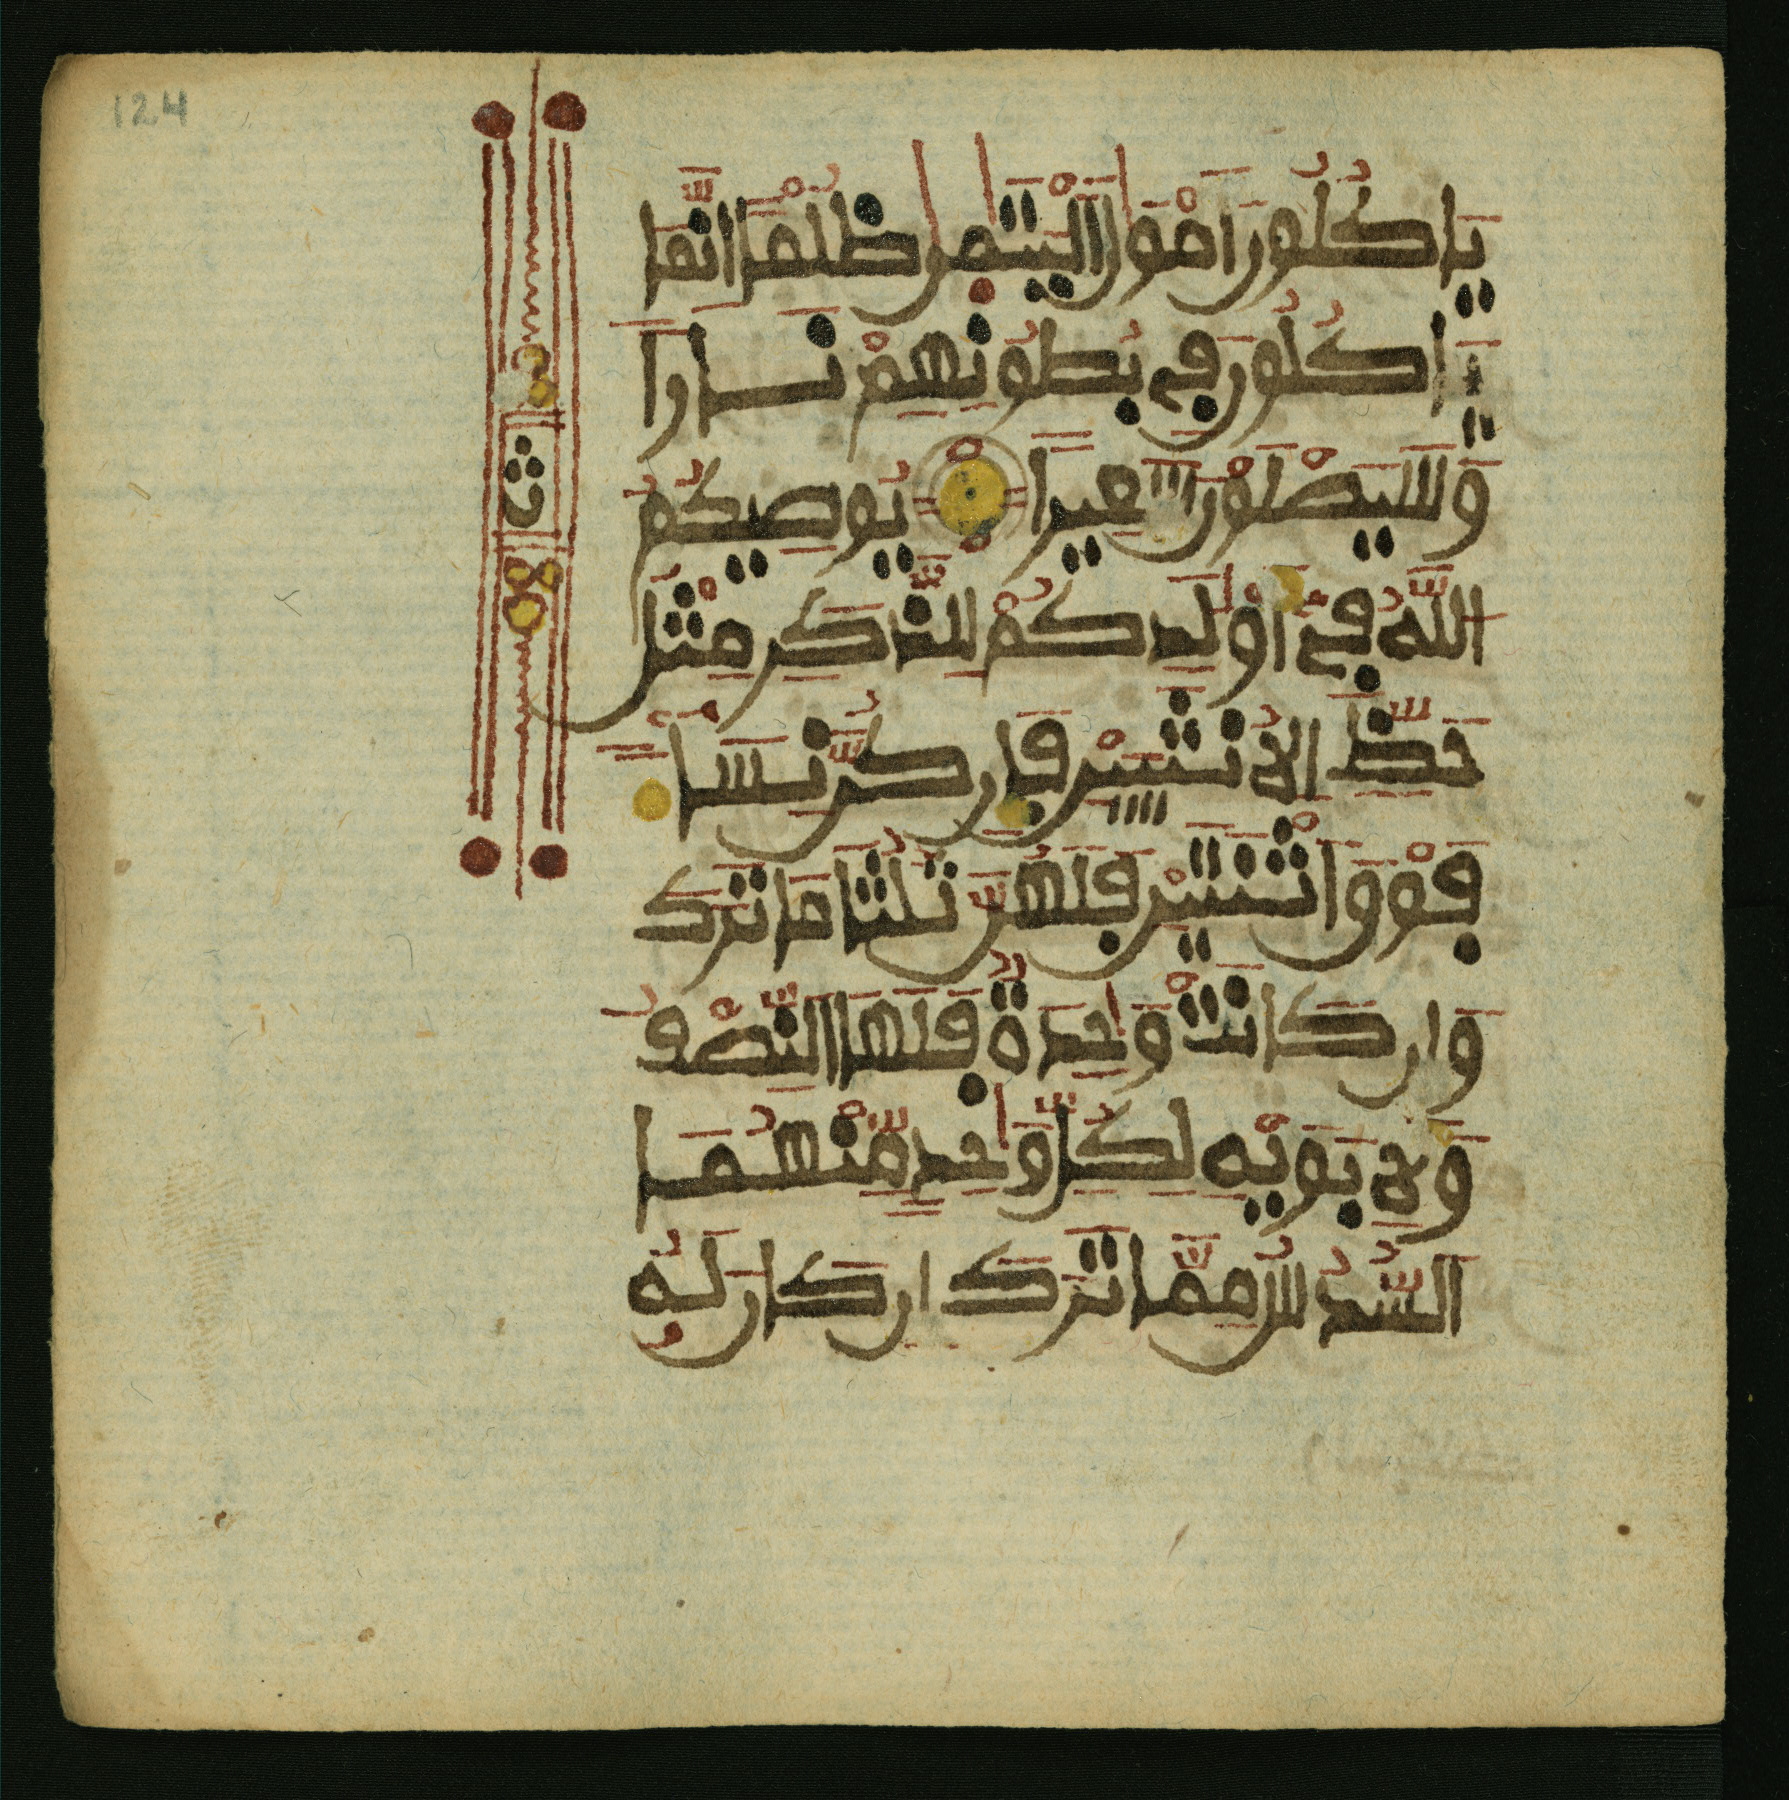 124
يَاكُلُونَ أَمْوَٰلَ ٱلْيَتَٰمَىٰ ظُلْمًا اِنَّمَا
يَاكُلُونَ فِي بُطُونِهِمْ نَارًا
وَسَيَصْلَوْنَ سَعِيرًا يُوصِيكُمُ
ث
اللَّهُ فِي أَوْلَٰدِكُمْ لِلذَّكَرِ مِثْلُ
حَظِّ الُانثَيَيْنِ فَإِن كُنَّ نِسَاءً
فَوْقَ اثْنَتَيْنِ فَلَهُنَّ ثُلُثَا مَا تَرَكَ
وَإِن كَانَتْ وَٰحِدَةٌ فَلَهَا النِّصْفُ
وَلِأَبَوَيْهِ لِكُلِّ وَٰحِدٍ مِّنْهُمَا
السُّدُسُ مِمَّا تَرَكَ إِن كَانَ لَهُ